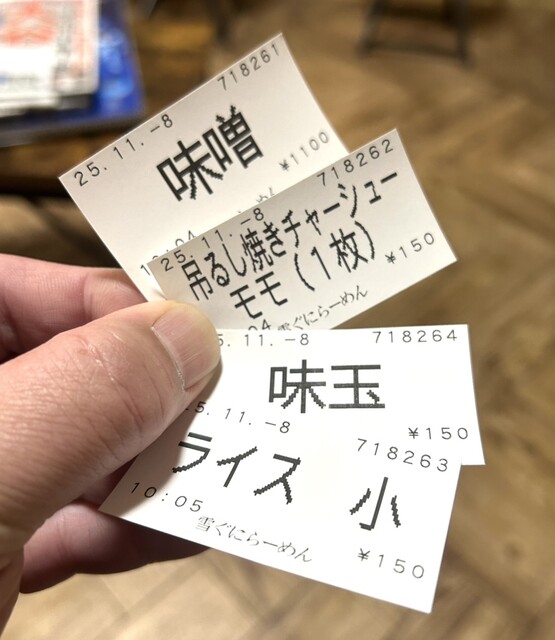 718261
25.11.-8
味噌
¥1100
718262
25.11.-8
吊るし焼きチャーシュー
モモ(1枚)
¥150
雪ぐにらーめん
11.-8
718264
味玉
¥150
5.11.-8
718263
ライス 小
10:05
雪ぐにらーめん
¥150